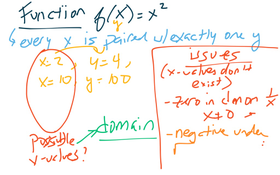 Function f(x) = x²
y
↳ every x is paired w/exactly one y
x=2, y=4,
x=10, y=100
possible
x-values?
domain
issues
(x-values don't
exist)
- zero in denom 1/x
x≠0
- negative under √